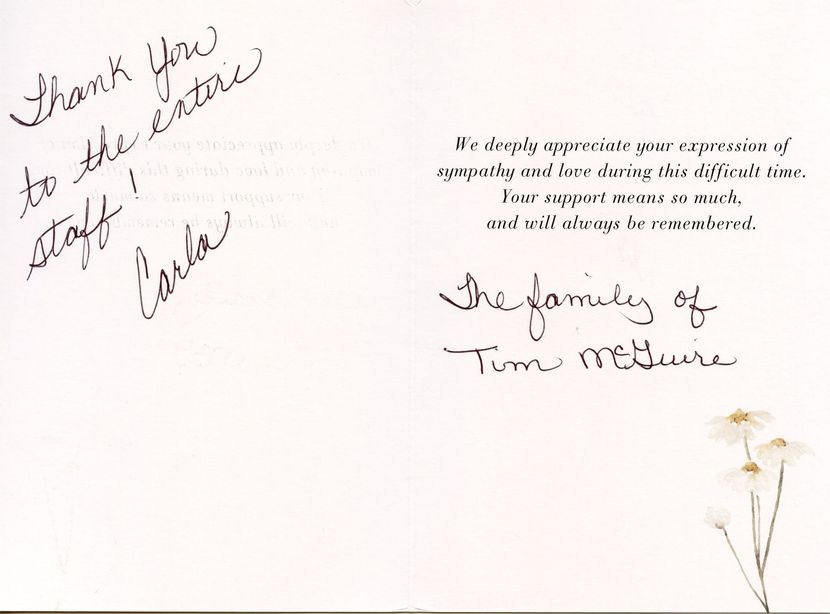 Thank You
to the entire
staff!
Carla
We deeply appreciate your expression of
sympathy and love during this difficult time.
Your support means so much,
and will always be remembered.
The family of
Tim McGuire